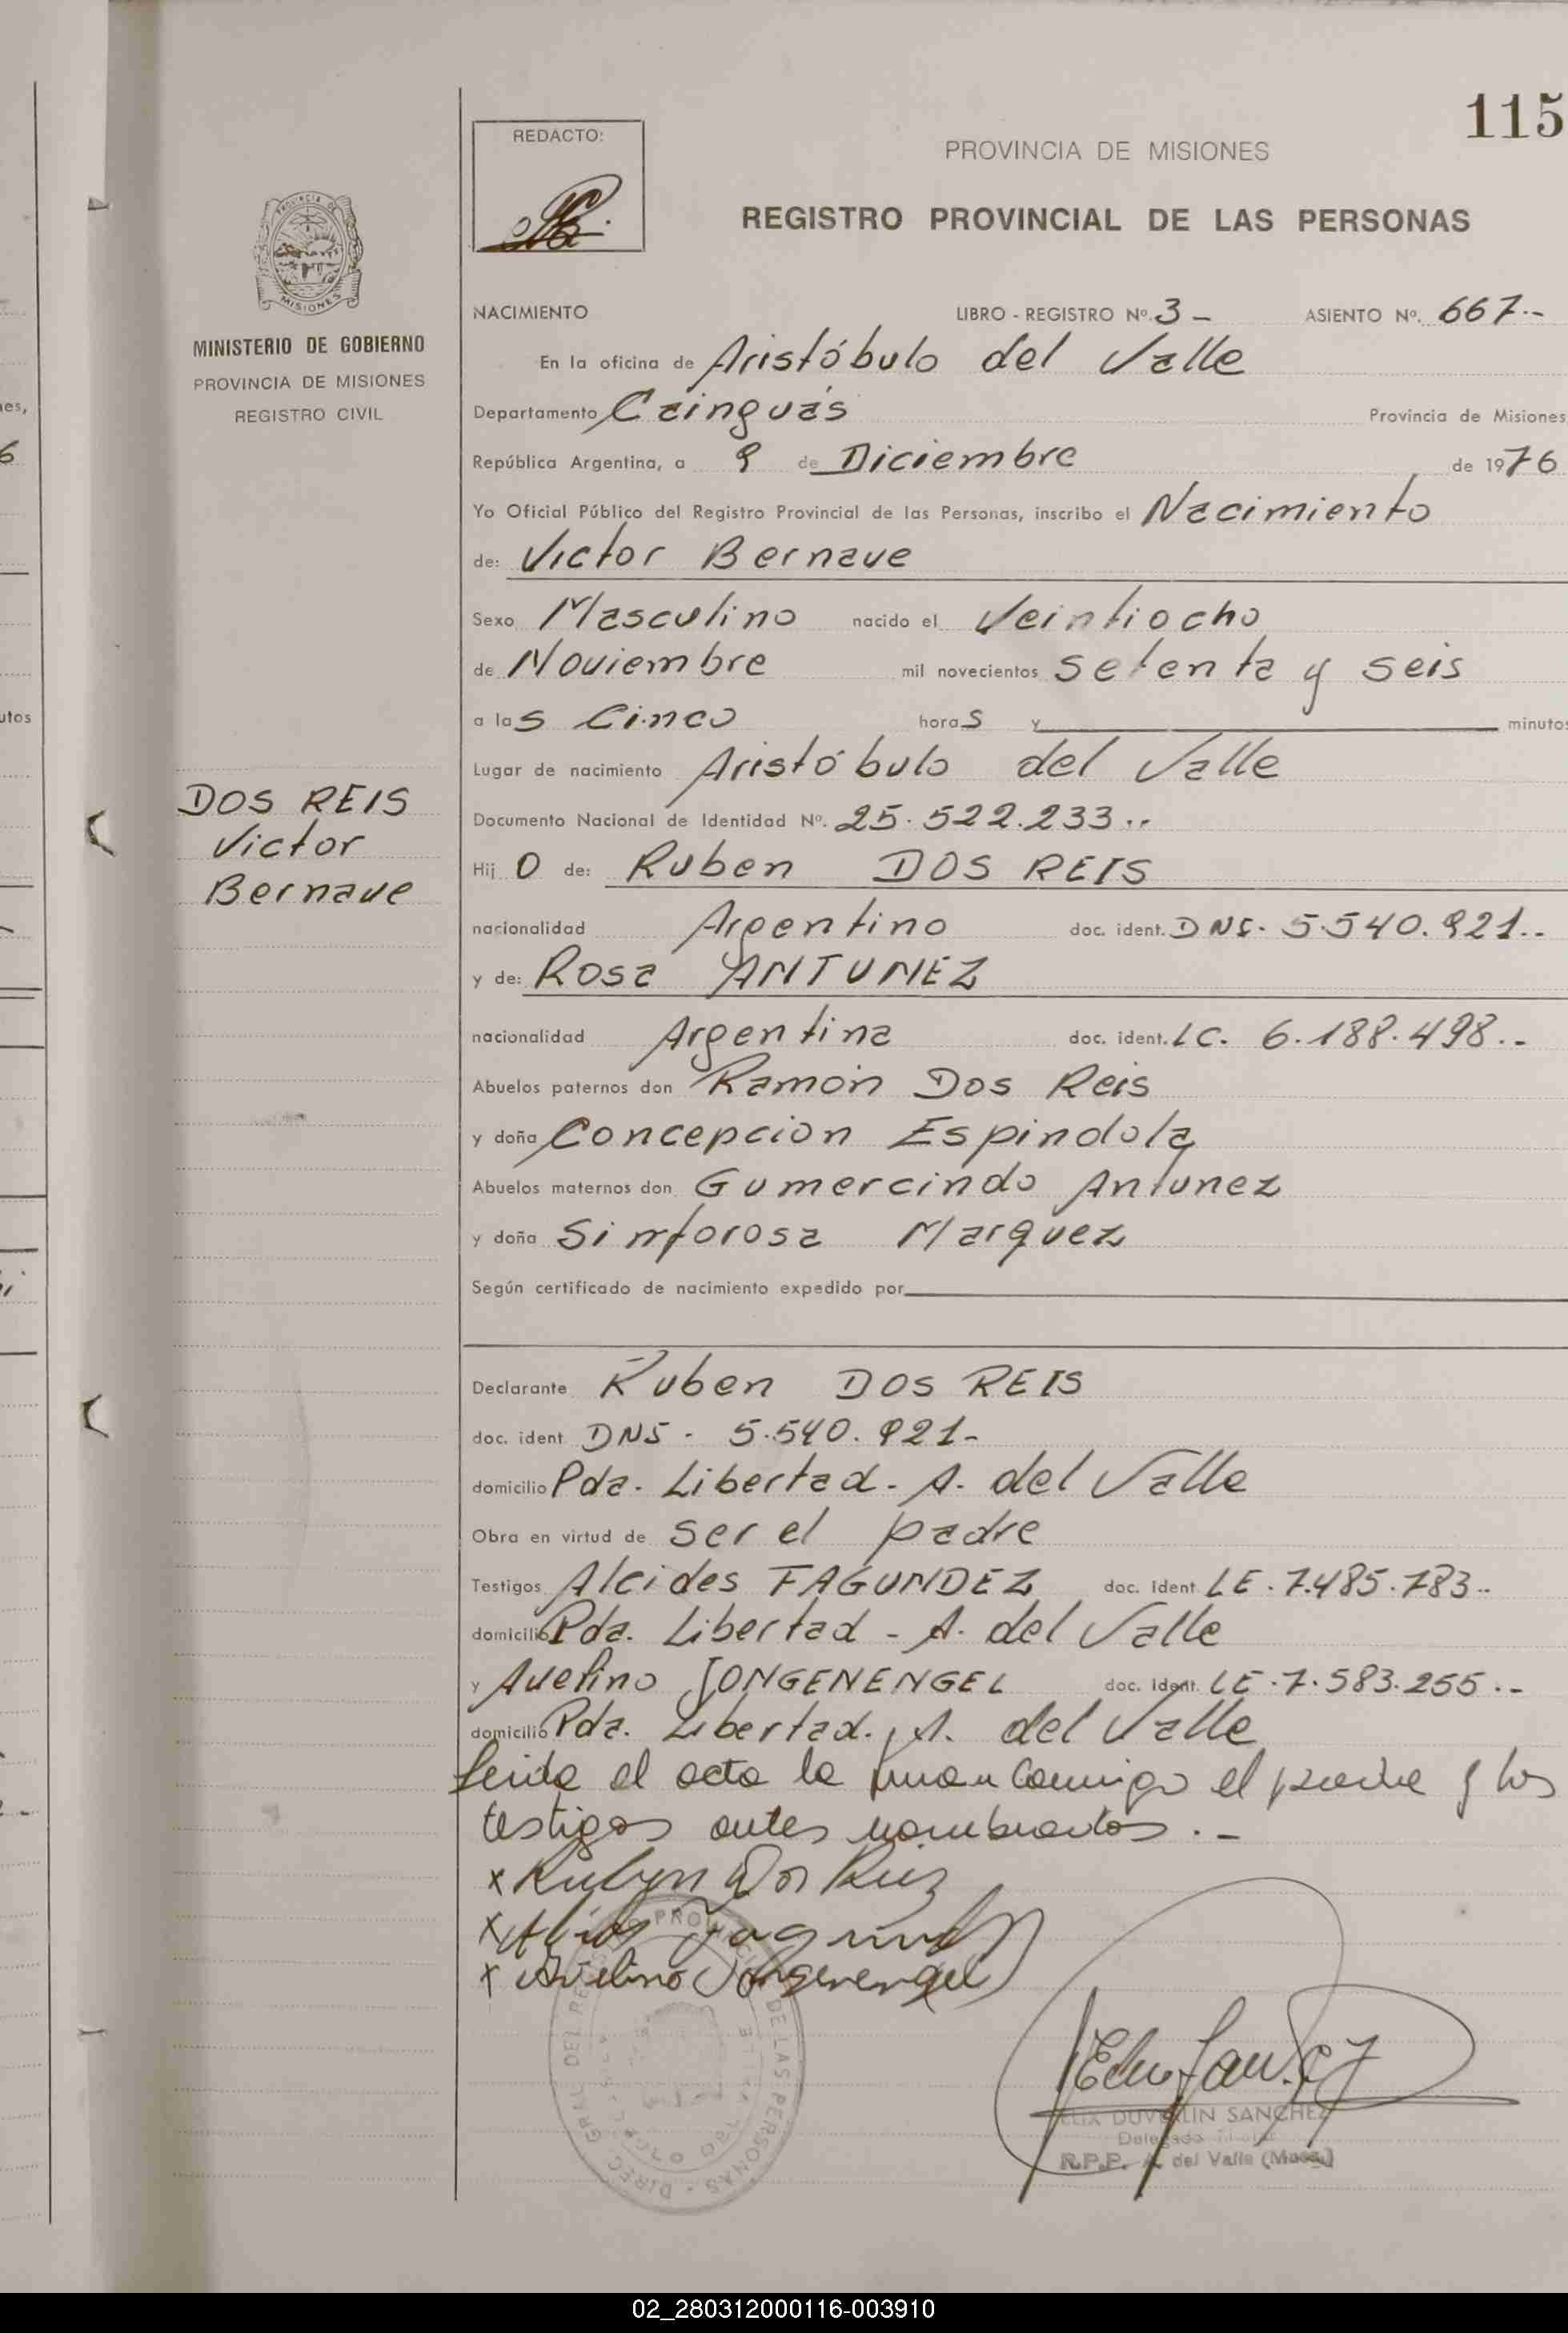 115
REDACTO:
PROVINCIA DE MISIONES
REGISTRO PROVINCIAL DE LAS PERSONAS
MINISTERIO DE GOBIERNO
PROVINCIA DE MISIONES
REGISTRO CIVIL
NACIMIENTO LIBRO - REGISTRO Nº. 3 - ASIENTO Nº. 667.-
En la oficina de Aristóbulo del Valle
Departamento Cainguás Provincia de Misiones
República Argentina, a 9 de Diciembre de 1976
Yo Oficial Público del Registro Provincial de las Personas, inscribo el Nacimiento
de: Victor Bernave
Sexo Masculino nacido el Veintiocho
de Noviembre mil novecientos setenta y seis
a las Cinco horas y minutos
Lugar de nacimiento Aristóbulo del Valle
DOS REIS
Victor
Bernave
Documento Nacional de Identidad Nº. 25.522.233..
Hijo de: Ruben DOS REIS
nacionalidad Argentino doc. ident. DNI. 5.540.921..
y de: Rosa ANTUNEZ
nacionalidad Argentina doc. ident. LC. 6.188.498.-
Abuelos paternos don Ramón Dos Reis
y doña Concepcion Espindola
Abuelos maternos don Gumercindo Antunez
y doña Sinforosa Marquez
Según certificado de nacimiento expedido por
Declarante Ruben DOS REIS
doc. ident DNI - 5.540.921-
domicilio Pda. Libertad - A. del Valle
Obra en virtud de ser el padre
Testigos Alcides FAGUNDEZ doc. ident LE. 7.485.783..
domicilio Pda. Libertad - A. del Valle
y Avelino JONGENENGEL doc. ident. LE. 7.583.255.-
domicilio Pda. Libertad. A. del Valle
Leida el acta la firman conmigo el padre y los
testigos antes nombrados.-
x Ruben Dos Reis
x
x Avelino Jongenengel
DIREC. GRAL. DEL REGISTRO PROVINCIAL DE LAS PERSONAS
FELIX DUVALIN SANCHEZ
Delegado Titular
R.P.P. A. del Valle (Mnes.)
02_280312000116-003910